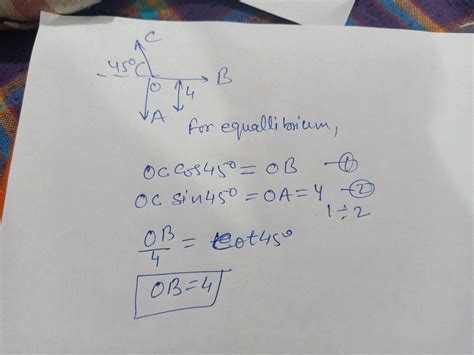 C
45°
O
B
4
A
For equallibrium,
OC cos45° = OB — ①
OC sin45° = OA = 4 — ②
1 ÷ 2
OB/4 = cot45°
OB = 4